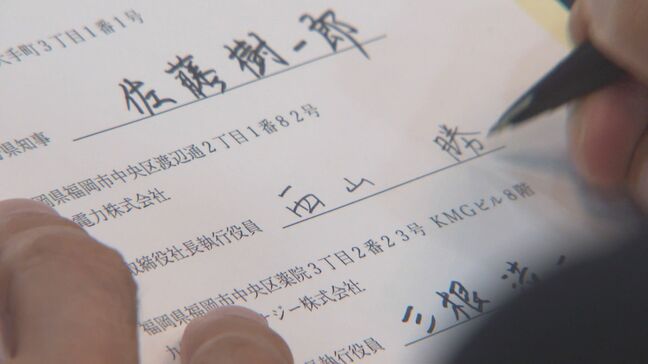 大手町3丁目1番1号
県知事 佐藤樹一郎
岡県福岡市中央区渡辺通2丁目1番82号
電力株式会社
取締役社長執行役員 西山 勝
福岡県福岡市中央区薬院3丁目2番23号 KMGビル8階
ジー株式会社
執行役員 三根